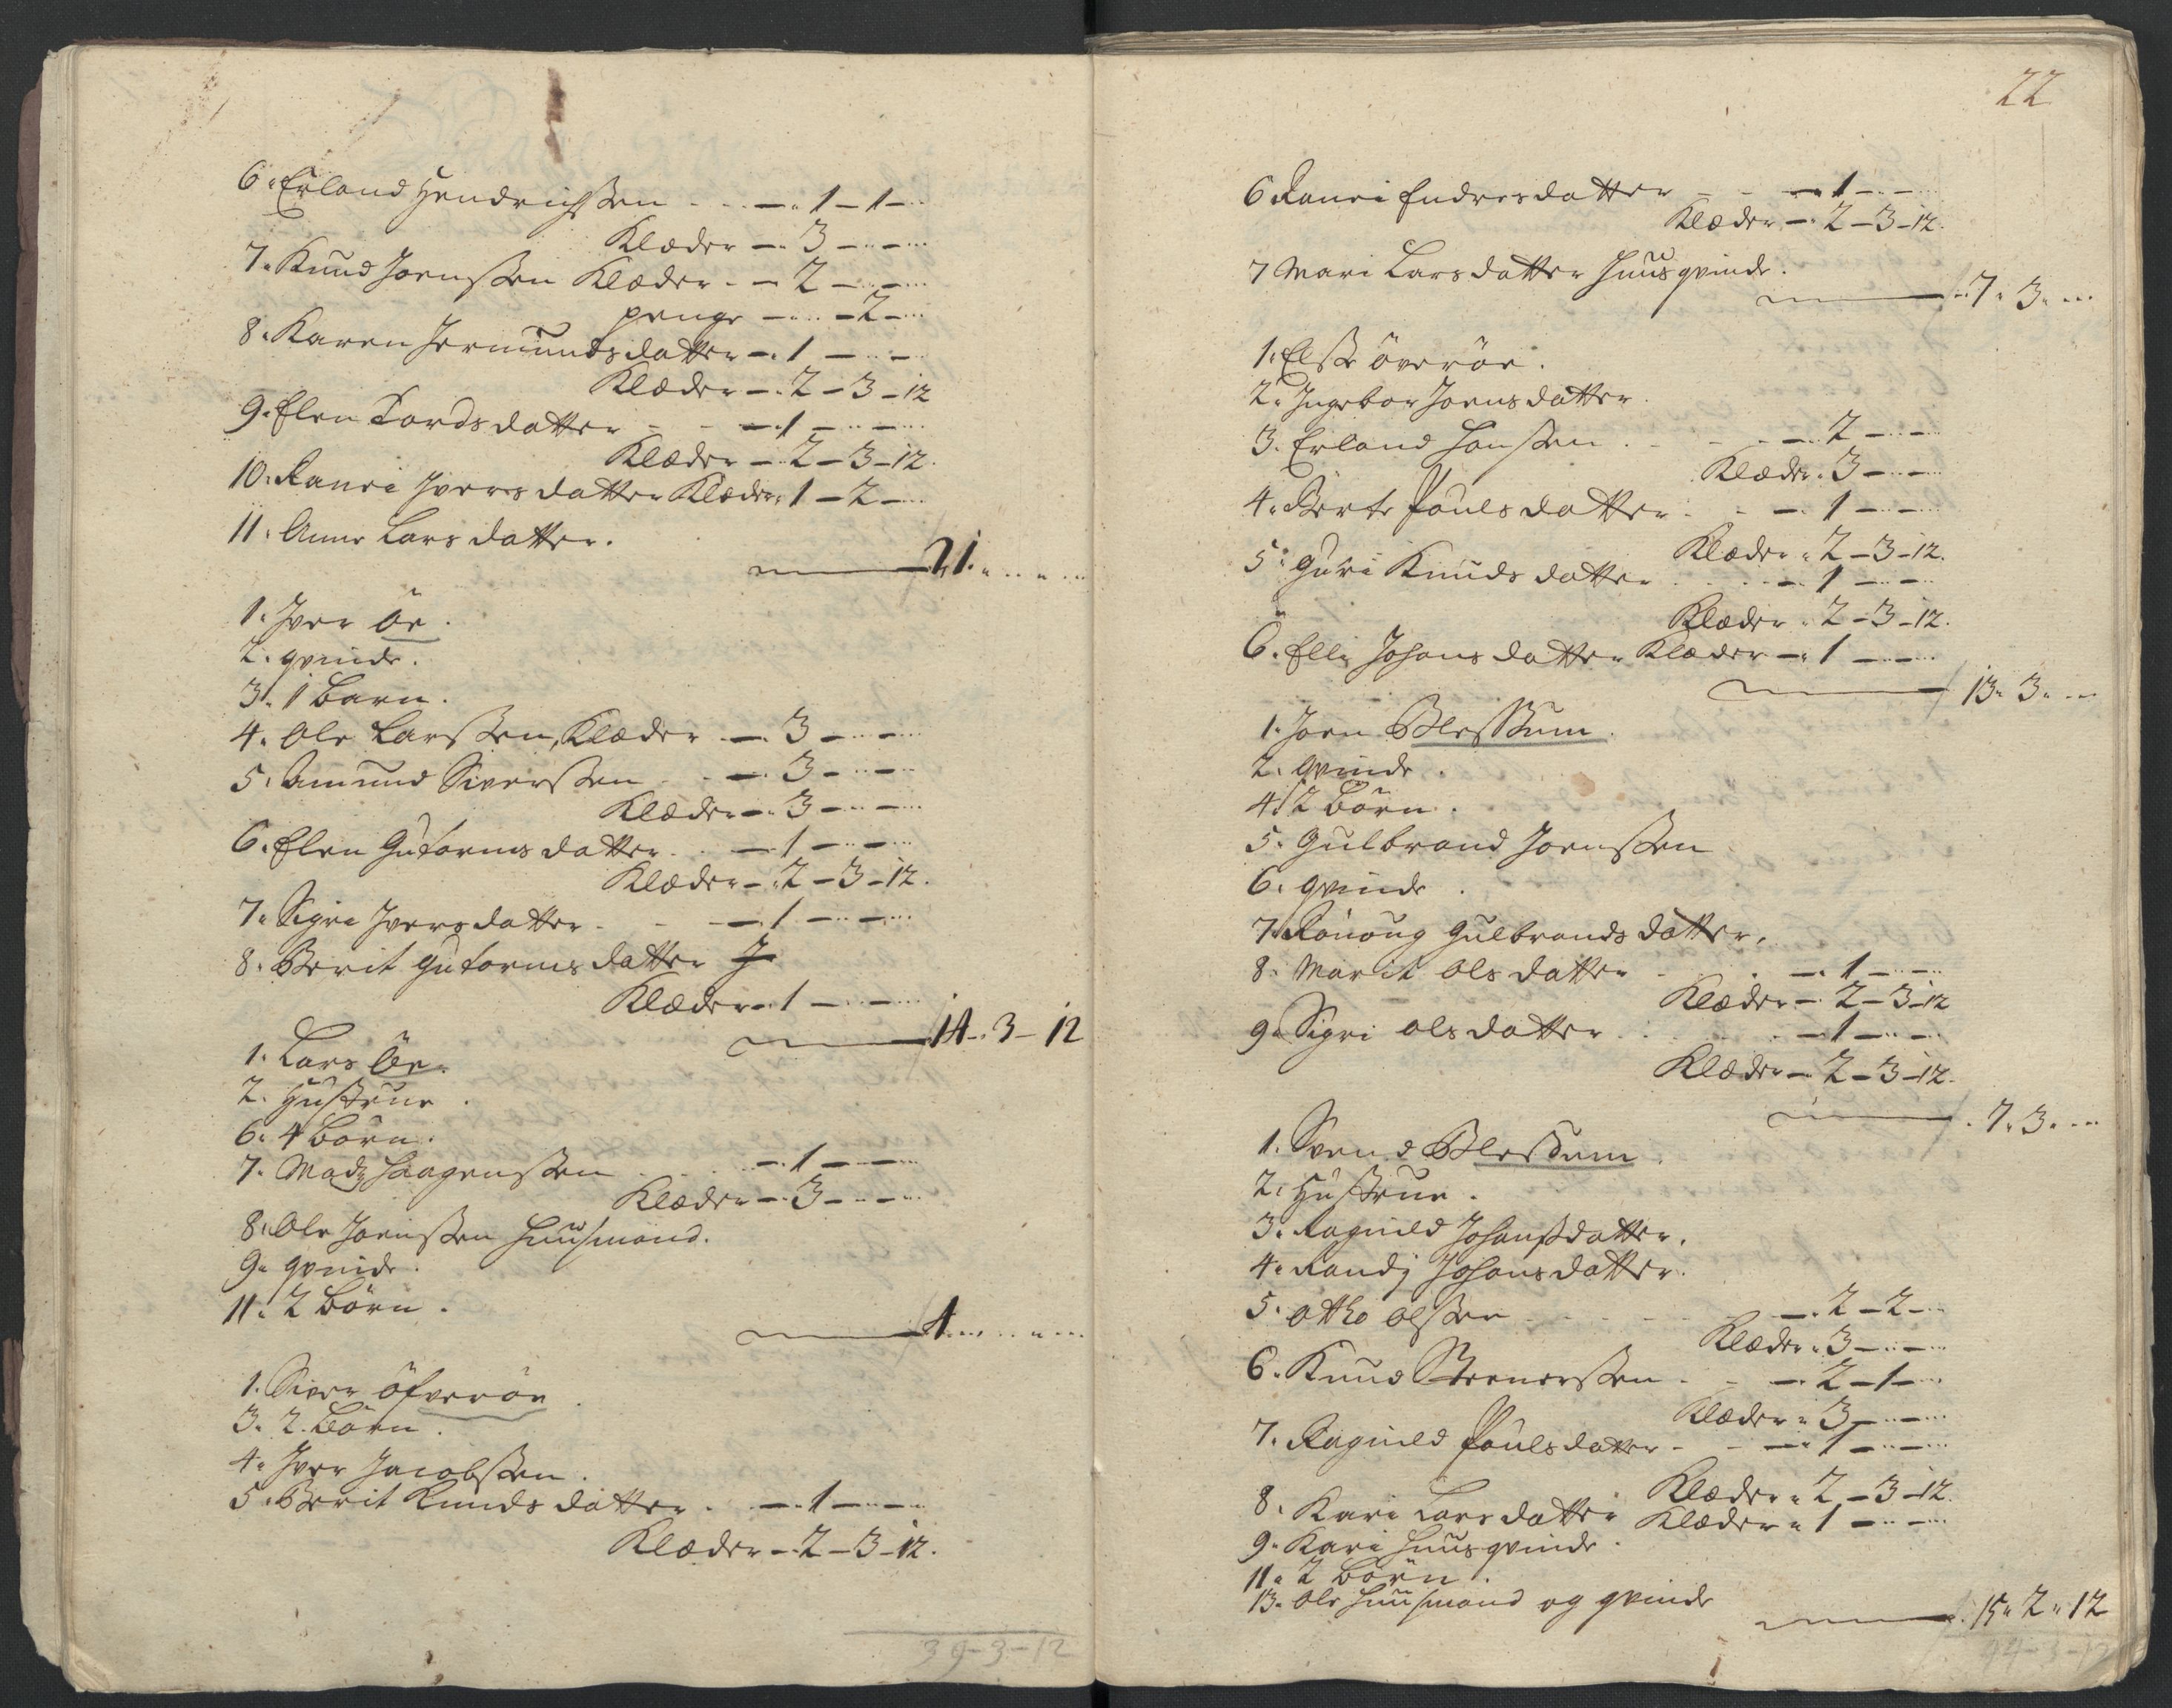 6. Erland Hendrichssen - - - 1 - 1 -
Klæder - 3 - - -
7. Knud Joenssen Klæder - - 2 - - -
penge - - - 2 -
8. Karen Jermundsdatter - 1 - - -
Klæder - 2 - 3 - 12
9. Elen Tordsdatter - - - 1 - - -
Klæder - 2 - 3 - 12.
10. Ranei Iversdatter Klæder 1 - 2 -
11. Anne Larsdatter.
21.
1. Iver öe.
2. qvinde.
3. 1 barn.
4. Ole Larssen, Klæder - 3 - - -
5. Amund Siverssen - - 3 - - -
Klæder - 3 - - -
6. Elen Gutormsdatter - - 1 - - -
Klæder - 2 - 3 - 12.
7. Sigre Iversdatter - - 1 - - -
8. Berit gutormsdatter
Klæder - 1 - - -
14 - 3 - 12
1. Lars öe.
2. Hustrue.
6. 4 börn.
7. Madz Haagenssen - - 1 - - -
Klæder - 3 - - -
8. Ole Joenssen Huusmand.
9. qvinde.
11. 2 börn.
4.
1. Siver öfveröe
3. 2. börn.
4. Iver Jacobssen.
5. Berit Knudsdatter - - 1 - - -
Klæder - 2 - 3 - 12.
39-3-12
22
6 Ranei Endresdatter - - - 1 - -
Klæder - 2 - 3 - 12.
7 Mari Larsdatter Huusqvinde.
7. 3.
1. Else överöe.
2. Ingebor Joensdatter.
3. Erland Hanssen - - - 2 - -
Klæder. 3 - - -
4. Berte Poulsdatter - - 1 - - -
Klæder. 2 - 3 - 12.
5. Guri Knudsdatter - - 1 - - -
Klæder. 2 - 3 - 12.
6. Elli Johansdatter Klæder - 1 - - -
13. 3.
1. Joen Blessum.
2. qvinde.
4. 2 börn.
5. Gulbrand Joenssen
6. qvinde.
7. Rönoug Gulbrandsdatter.
8. Marit Olsdatter - - - 1 - - -
Klæder - 2 - 3 - 12
9. Sigri Olsdatter - - - 1 - - -
Klæder - 2 - 3 - 12.
7. 3.
1. Svend Blessum.
2. Hustrue.
3. Ragnild Johansdatter.
4. Randj Johansdatter.
5. Otto Olssen - - - 2 - 2 -
Klæder. 3 - - -
6. Knud Steenerssen - - 2 - 1 -
Klæder. 3 - - -
7. Ragnild Poulsdatter - - 1 - - -
Klæder. 2 - 3 - 12.
8. Kari Larsdatter Klæder. 1 - - -
9. Kari Huusqvinde.
11. 2 börn.
13. Ole Huusmand og qvinde
15. 2. 12
44-3-12